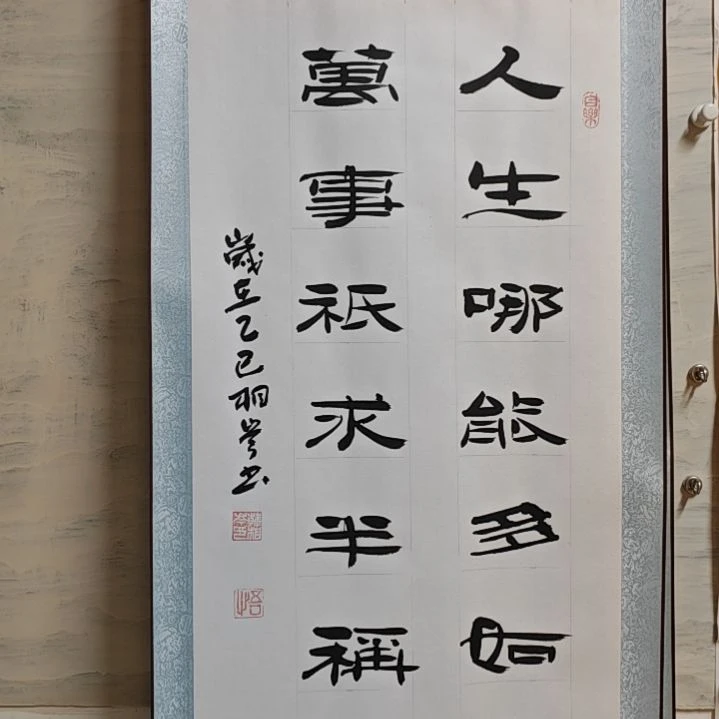 人生哪能多如
萬事祇求半稱
歲在乙巳
書